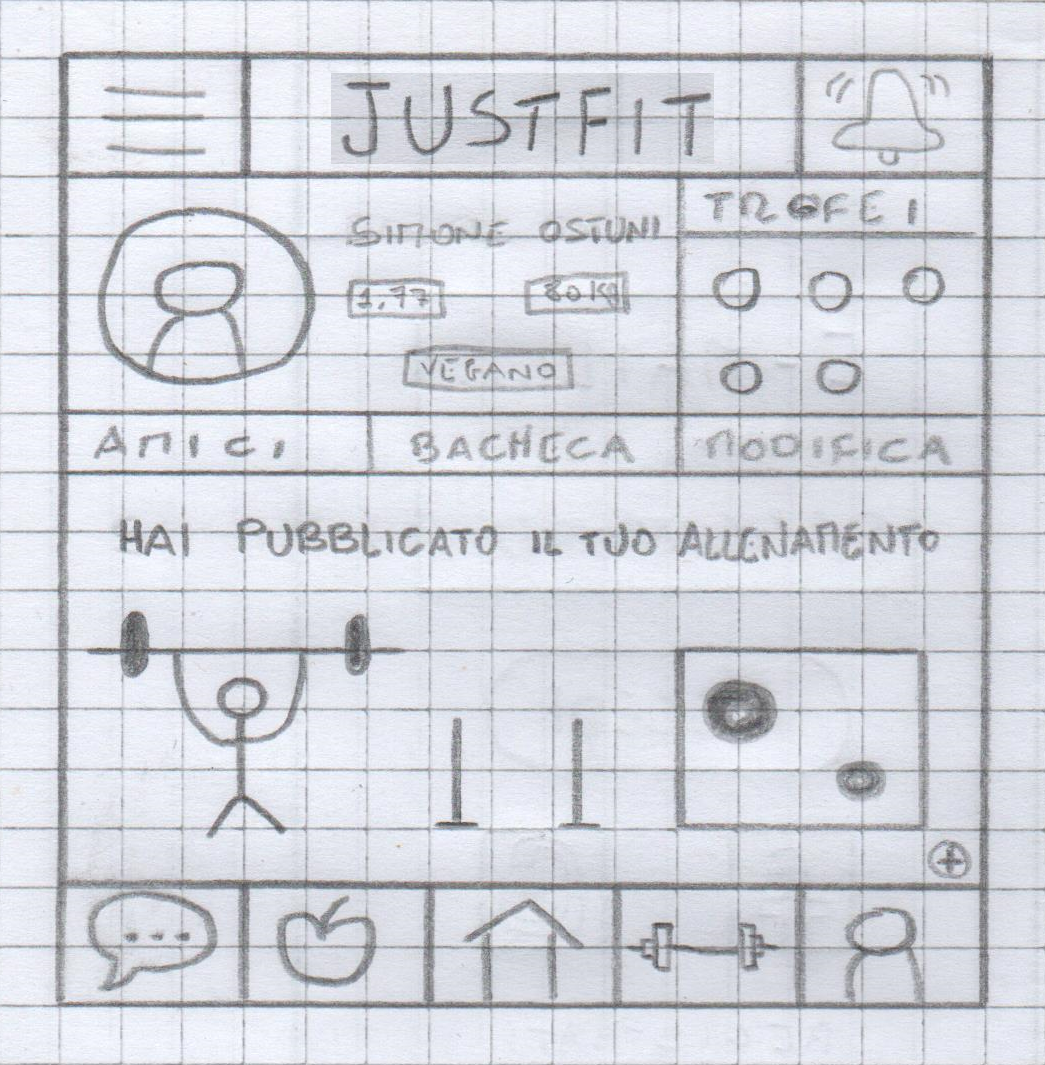 JUSTFIT
TROFEI
SIMONE OSTUNI
1,77 80KG
VEGANO
AMICI BACHECA MODIFICA
HAI PUBBLICATO IL TUO ALLENAMENTO